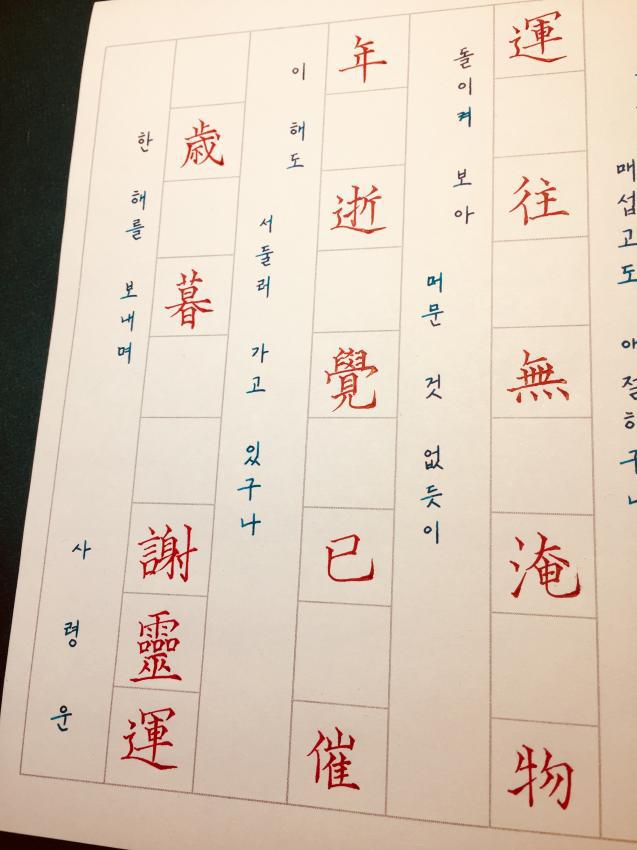 매섭고도 애절하구나
運往無淹物
돌이켜 보아 머문 것 없듯이
年逝覺已催
이 해도 서둘러 가고 있구나
歲暮 謝靈運
한 해를 보내며 사령운